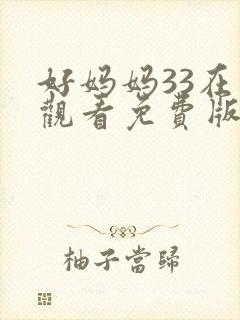 好妈妈33在
觀看免費版
柚子當歸